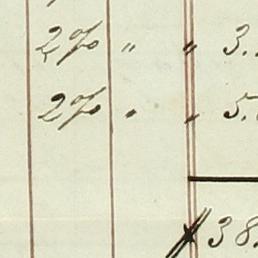 2% " " 3.
2% " " 5.
$38.